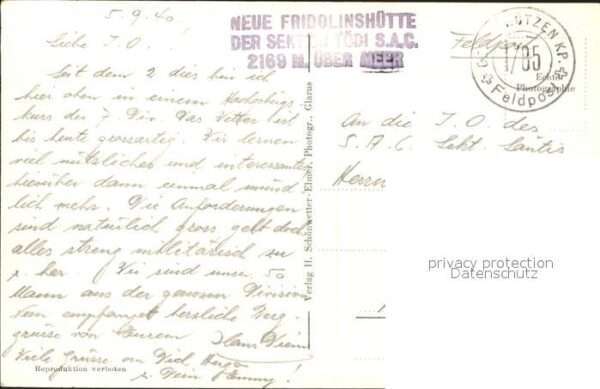 5.9.40
NEUE FRIDOLINSHÜTTE
DER SEKTION TÖDI S.A.C.
2169 M. ÜBER MEER
Feldpost
SCHÜTZEN KP.
I/85
Feldpost
Echte
Photographie
Liebe I.O.!
Seit dem 2 dies bin ich
hier oben in einem Hochgebirgs
kurs der 7 Div. Das Wetter ist
bis heute grossartig. Wir lernen
viel nützliches und interessantes
hierüber dann einmal münd
lich mehr. Die Anforderungen
sind natürlich gross geht doch
alles streng militärisch zu
u. her. Wir sind unser 50
Mann aus der ganzen Division
Nun empfanget herzliche Berg
grüsse von Eurem Hans
Viele Grüsse an Dich
v. Dein
Reproduktion verboten
Verlag H. Schönwetter-Elmer, Photogr., Glarus
An die I.O. des
S.A.C. Sekt. Säntis
Herrn
privacy protection
Datenschutz